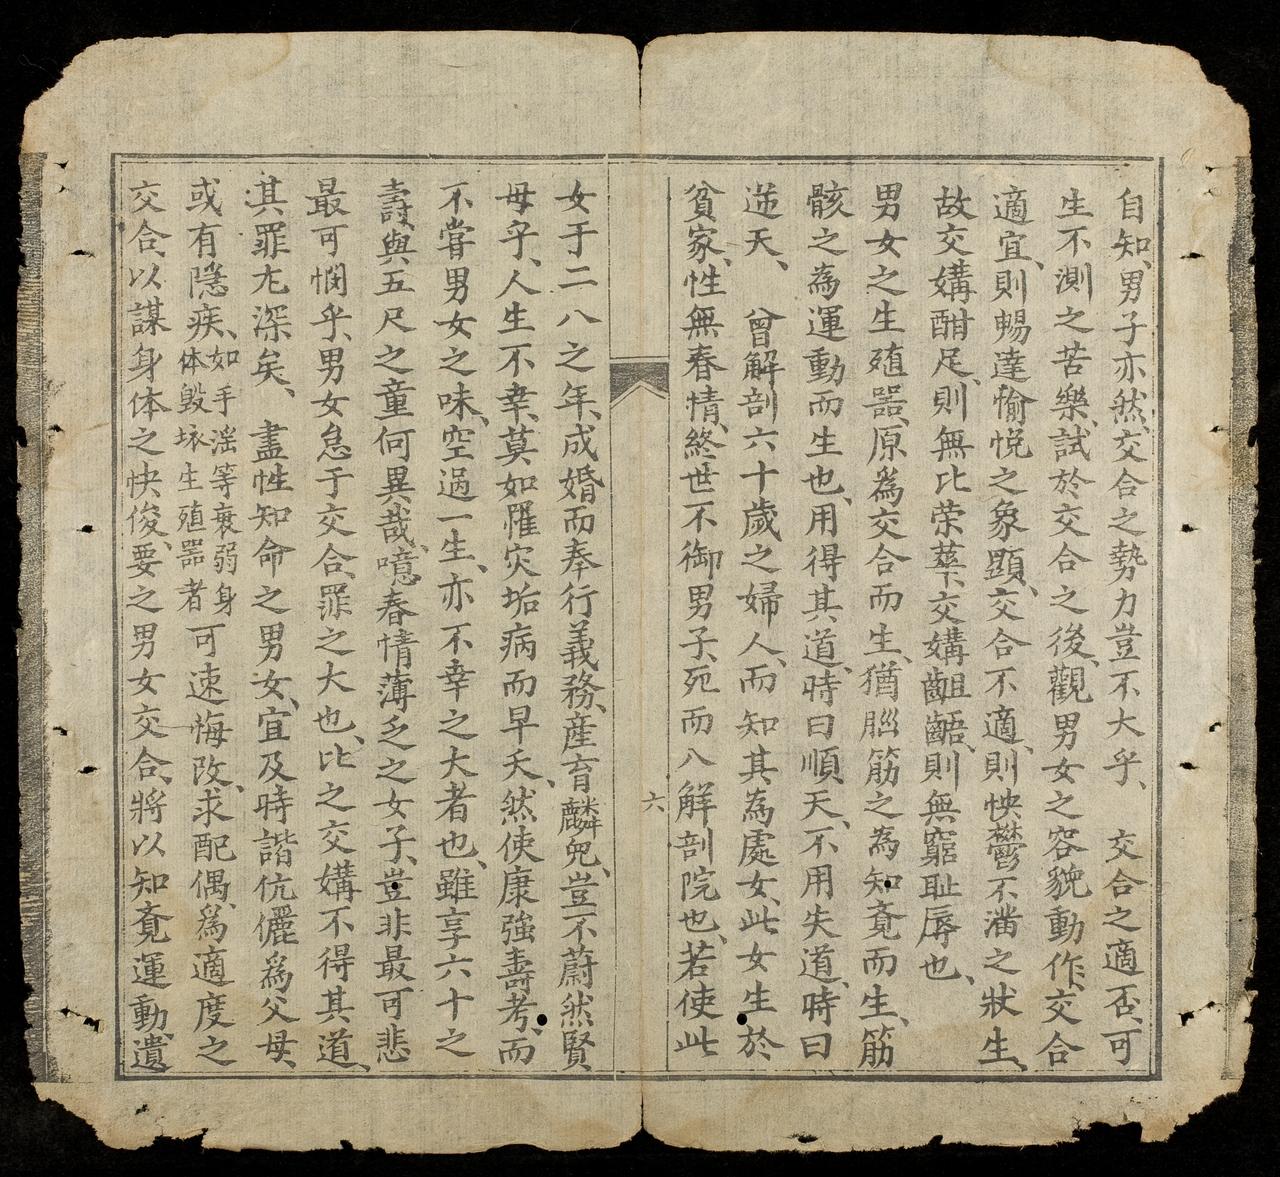 自知、男子亦然、交合之勢力豈不大乎、　交合之適否、可
生不測之苦樂、試於交合之後、觀男女之容貌動作、交合
適宜、則暢達愉悅之象顯、交合不適、則怏鬱不潘之狀生、
故交媾酣足、則無比荣華、交媾齟齬、則無窮耻辱也、
男女之生殖噐、原爲交合而生、猶腦筋之為知覔而生、筋
骸之為運動而生也、用得其道、時曰順天、不用失道、時曰
逆天、　曾解剖六十歲之婦人、而知其為處女、此女生於
貧家、性無春情、終世不御男子、死而入解剖院也、若使此
六
女于二八之年、成婚而奉行義務、產育麟兒、豈不蔚然賢
母乎、人生不幸、莫如罹灾垢病而早夭、然使康強壽考、而
不嘗男女之味、空過一生、亦不幸之大者也、雖享六十之
壽、與五尺之童何異哉、噫春情薄乏之女子、豈非最可悲
最可憫乎、男女怠于交合、罪之大也、比之交媾不得其道、
其罪尢深矣、　盡性知命之男女、宜及時諧伉儷爲父母、
或有隱疾、如手滛等衰弱身体毀坏生殖噐者可速悔改、求配偶、爲適度之
交合、以謀身体之快俊、要之男女交合、將以知覔運動、遺